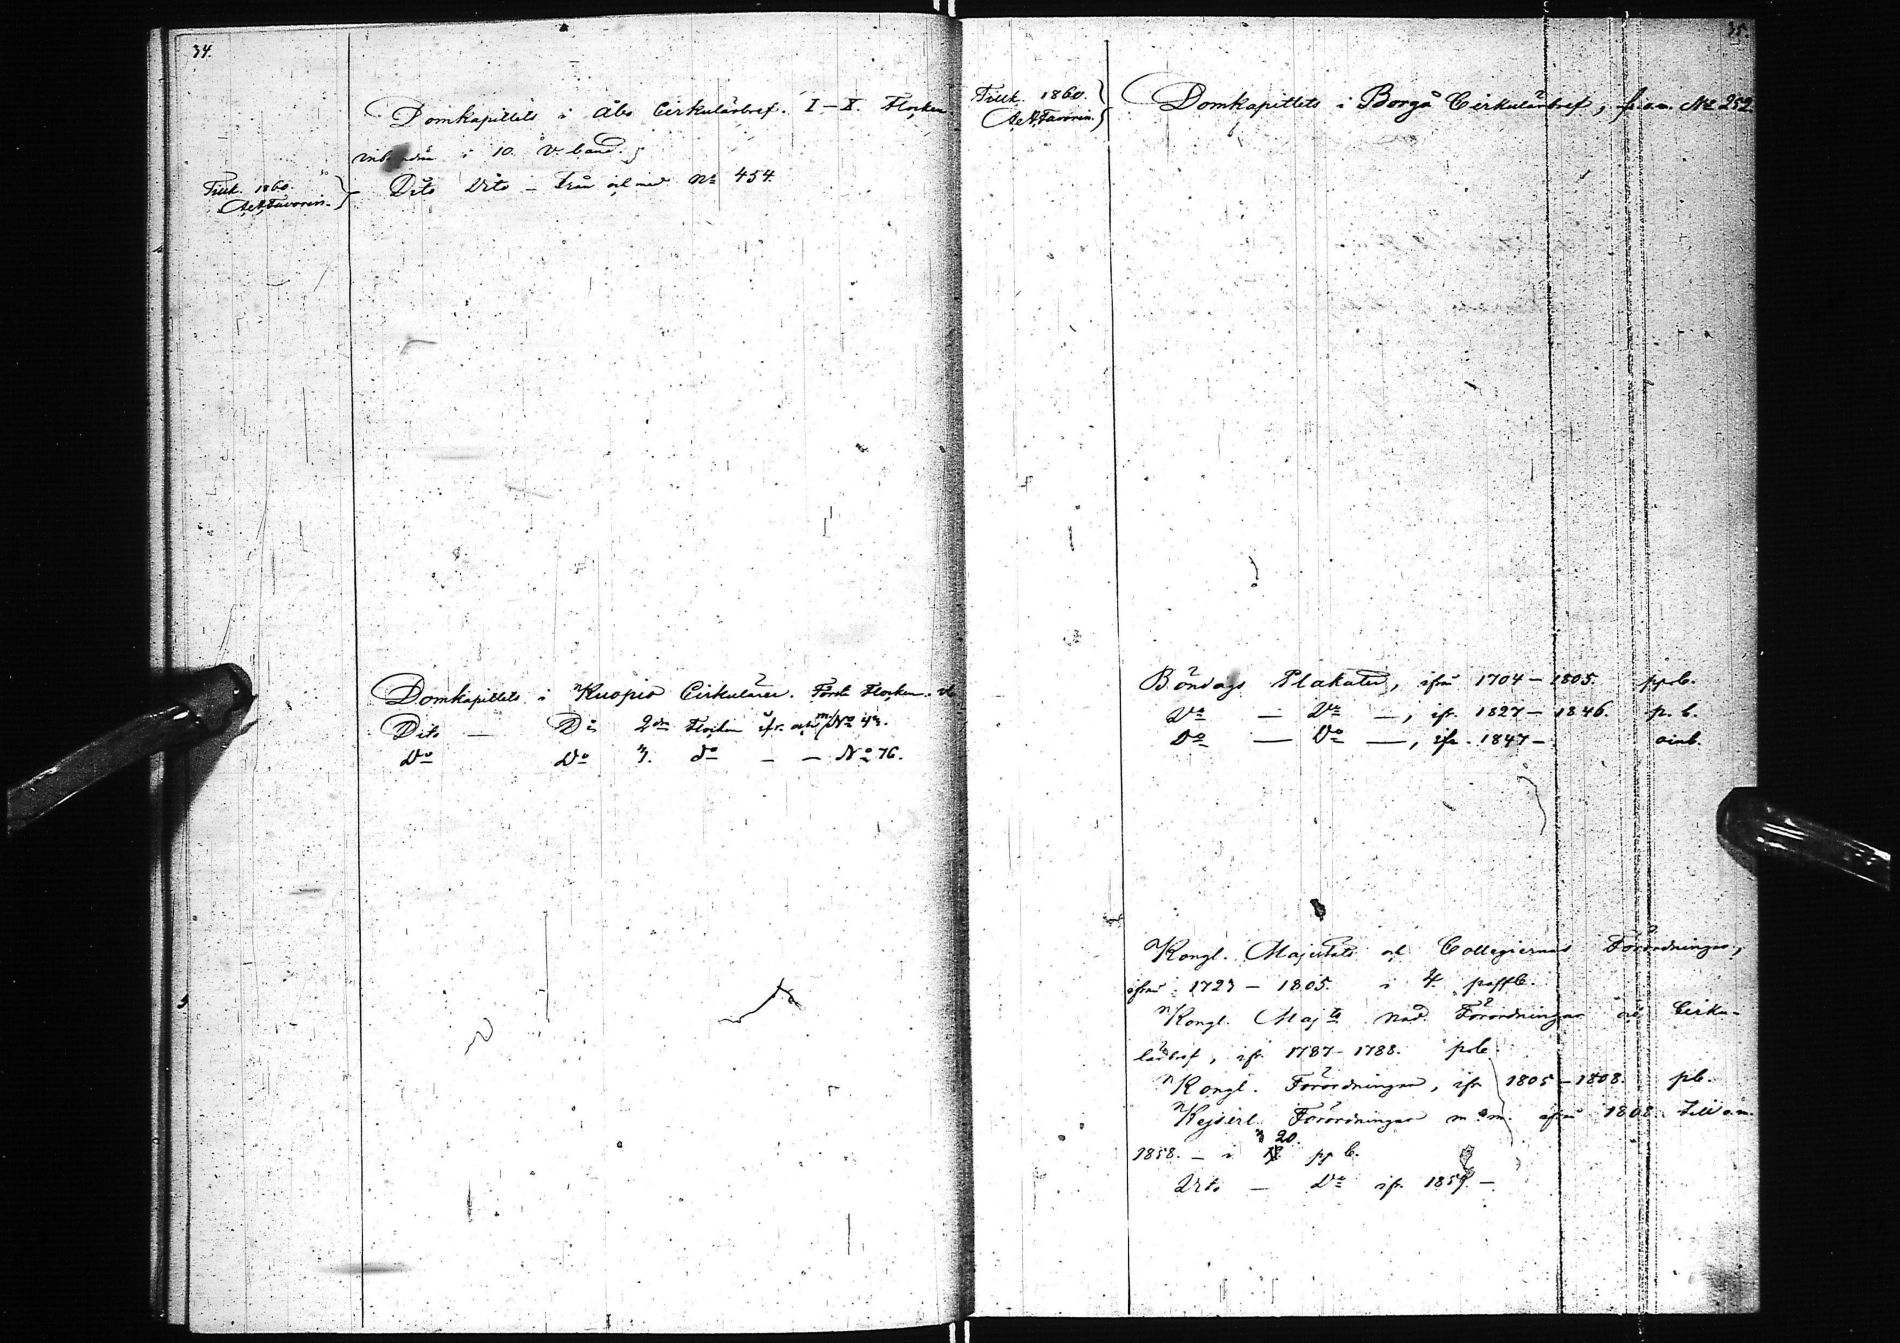 34.
Domkapitlets i Åbo Cirkulärbref. I–X. Flocken
i 10 v. band.
Tillk. 1860. Dito Dito – från och med No 454.
A. A. Favorin.
Domkapitlets i Kuopio Cirkulärer. Första Flocken.
Dito — Do 2dra Flocken ifr. och m/ No 43.
Do Do 3. do – – No 76.
35.
Tillk. 1860. Domkapitlets i Borgå Cirkulärbref, fr. o. m. No 252
A. A. Favorin.
Böndags Plakater, ifrån 1704–1805. ppb.
Do — Do —, ifr. 1827–1846. p. b.
Do — Do —, ifr. 1847– oinb.
Kongl. Majestäts och Collegiernas Förordningar,
ifrån 1723–1805. i 4. pappb.
Kongl. Majts Nåd. Förordningar och Cirku-
lärbref, ifr. 1787–1788. pb.
Kongl. Förordningar, ifr. 1805–1808. pb.
Kejserl. Förordningar m. m. ifrån 1808. till o. m.
1858. – i 20. pp b.
Dito — Do ifr. 1859. –